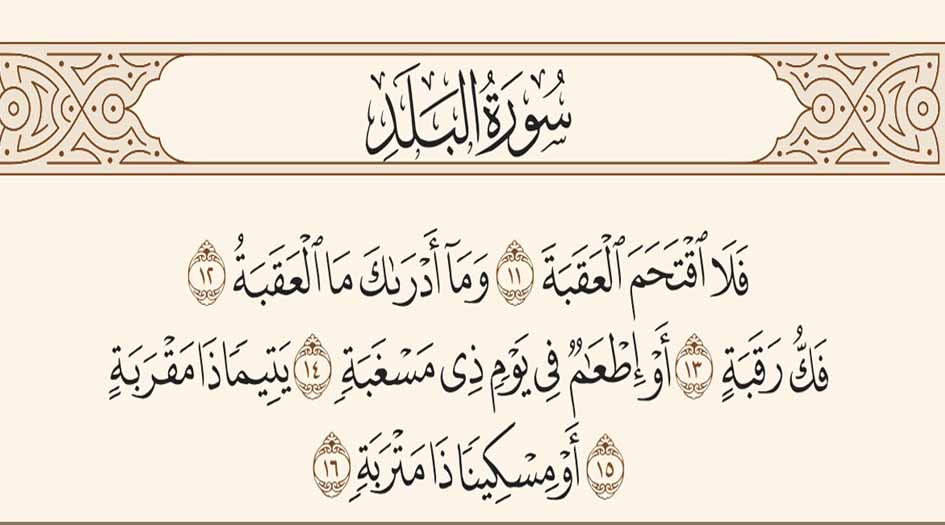 سُورَةُ البَلَدِ
فَلَا ٱقْتَحَمَ ٱلْعَقَبَةَ ١١ وَمَآ أَدْرَىٰكَ مَا ٱلْعَقَبَةُ ١٢
فَكُّ رَقَبَةٍ ١٣ أَوْ إِطْعَٰمٌ فِى يَوْمٍ ذِى مَسْغَبَةٍ ١٤ يَتِيمًا ذَا مَقْرَبَةٍ
١٥ أَوْ مِسْكِينًا ذَا مَتْرَبَةٍ ١٦